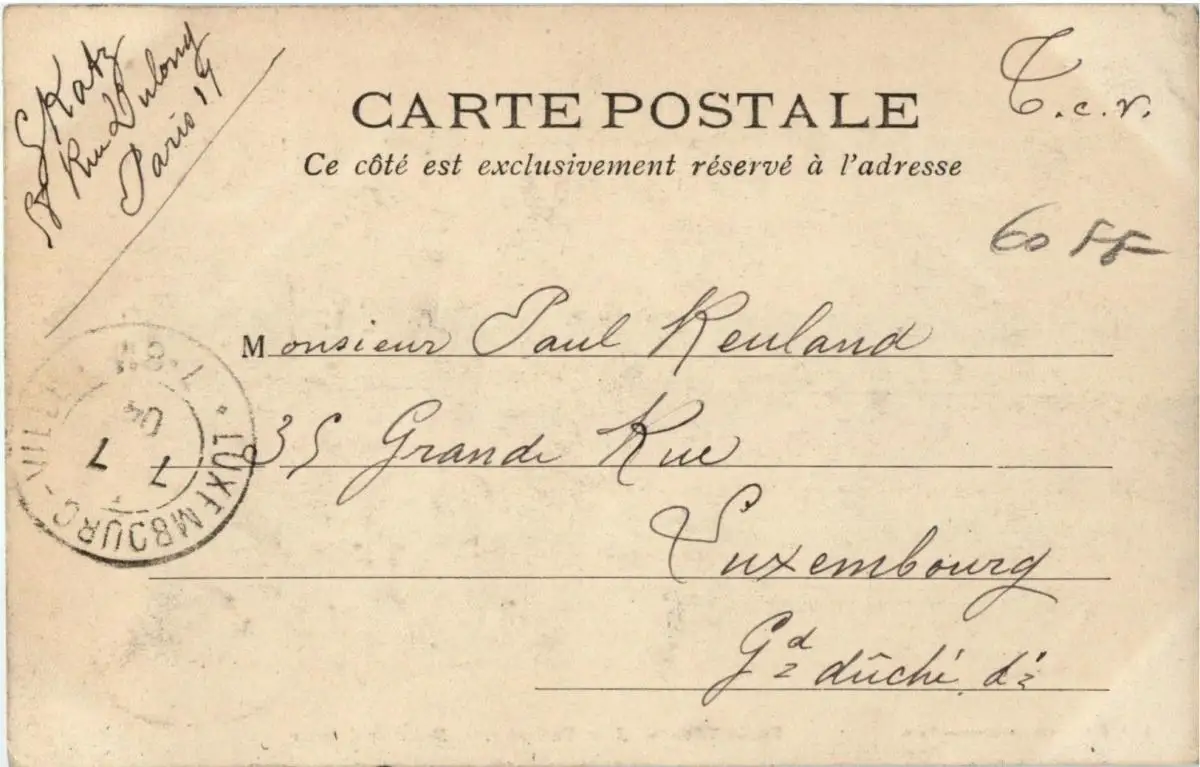 S Katz
8 Rue Dulong
Paris 17
CARTE POSTALE
T.c.v.
Ce côté est exclusivement réservé à l'adresse
60 FF
Monsieur Paul Reuland
35 Grande Rue
Luxembourg
Gd duché d
LUXEMBOURG-VILLE
7 7
04